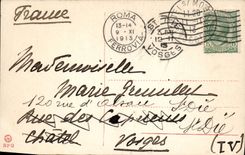 France
ROMA
13-14
9·XI
1913
FERROVIA
VOSGES
Mademoiselle
Marie
120 rue d'Alsace St Dié
Rue des Capucins
St Dié
Chatel Vosges
(IV)